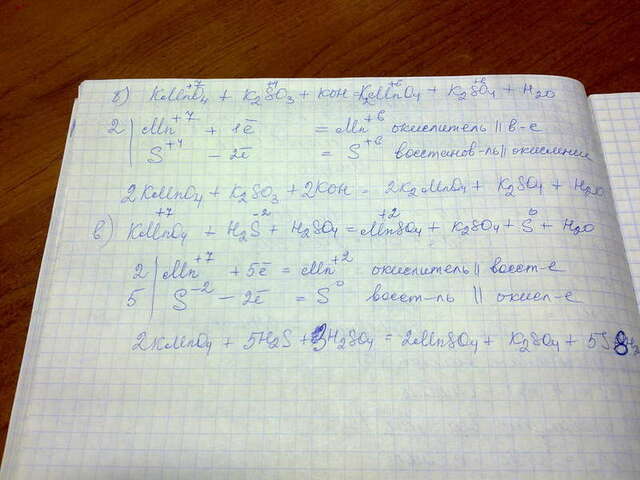 б) KMnO₄⁺⁷ + K₂SO₃⁺⁴ + KOH = K₂MnO₄⁺⁶ + K₂SO₄⁺⁶ + H₂O
2 | Mn⁺⁷ + 1ē = Mn⁺⁶ окислитель || в-е
1 | S⁺⁴ - 2ē = S⁺⁶ восстанов-ль || окисление
2KMnO₄ + K₂SO₃ + 2KOH = 2K₂MnO₄ + K₂SO₄ + H₂O
в) KMnO₄⁺⁷ + H₂S⁻² + H₂SO₄ = MnSO₄⁺² + K₂SO₄ + S⁰ + H₂O
2 | Mn⁺⁷ + 5ē = Mn⁺² окислитель || восст-е
5 | S⁻² - 2ē = S⁰ восст-ль || окисл-е
2KMnO₄ + 5H₂S + 3H₂SO₄ = 2MnSO₄ + K₂SO₄ + 5S 8H₂